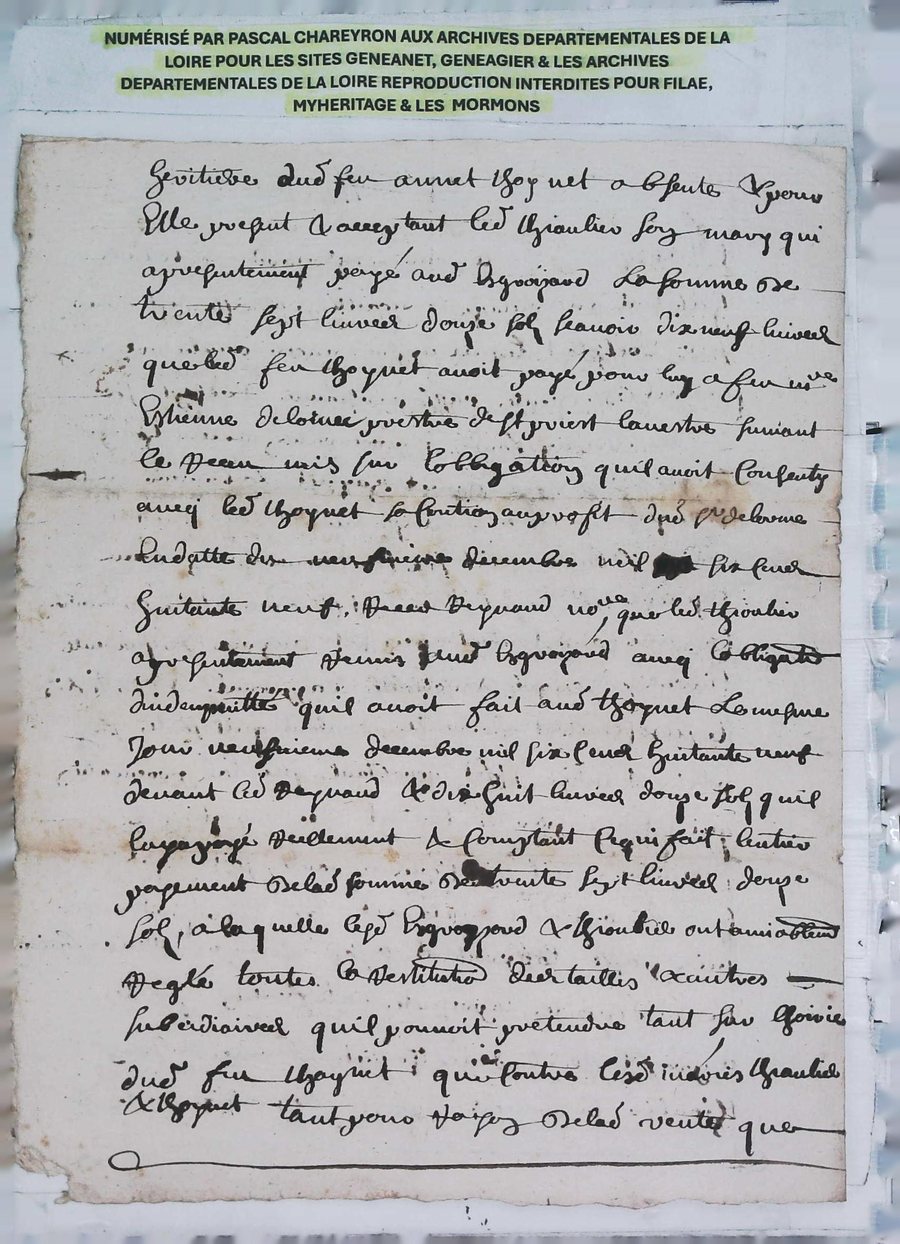 NUMÉRISÉ PAR PASCAL CHAREYRON AUX ARCHIVES DEPARTEMENTALES DE LA
LOIRE POUR LES SITES GENEANET, GENEAGIER & LES ARCHIVES
DEPARTEMENTALES DE LA LOIRE REPRODUCTION INTERDITES POUR FILAE,
MYHERITAGE & LES MORMONS
heritiere dud feu annet thoynet absente & pour
Elle present & acceptant led thiaulier son mary qui
a presentement payé aud la somme de
trente sept livres douze solz scavoir dix neuf livres
que led feu thoynet avoit payé pour luy a feu mre
Estienne delorme prestre de st priest lavestre suivant
le receu mis sur lobbligation quil avoit consenty
avecq led thoynet sa caution au profit dud sr delorme
En datte du neufvieme decembre mil six cens
huitante neuf, receu Reynaud nore que led thiolier
a presentement remis aud avecq lobbligation
dindempnitté quil avoit fait aud thoynet le mesme
Jour neufvieme decembre mil six cens huitante neuf
devant led Reynaud & dix huit livres douze solz quil
luy a payé reellement & comptant ce qui fait lentier
payement de lad somme de trente sept livres douze
solz, a laquelle lesd & thiaulier ont amiablement
reglé toutes la restitution des tailles & autres
subcidiaires quil pouvoit pretendre tant sur lhoirie
dud feu thoynet que contre lesd mariés thiaulier
& thoynet tant pour raison de lad vente que